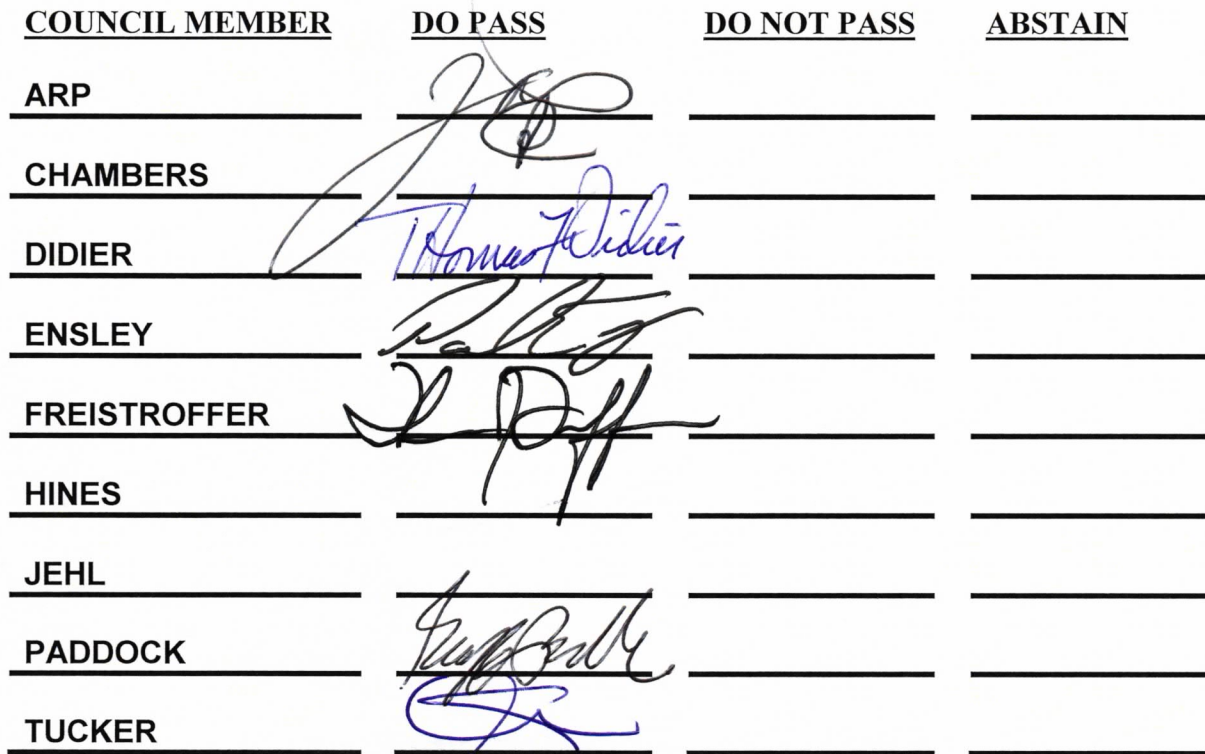 COUNCIL MEMBER DO PASS DO NOT PASS ABSTAIN
ARP
CHAMBERS
DIDIER Thomas F Didier
ENSLEY
FREISTROFFER
HINES
JEHL
PADDOCK
TUCKER